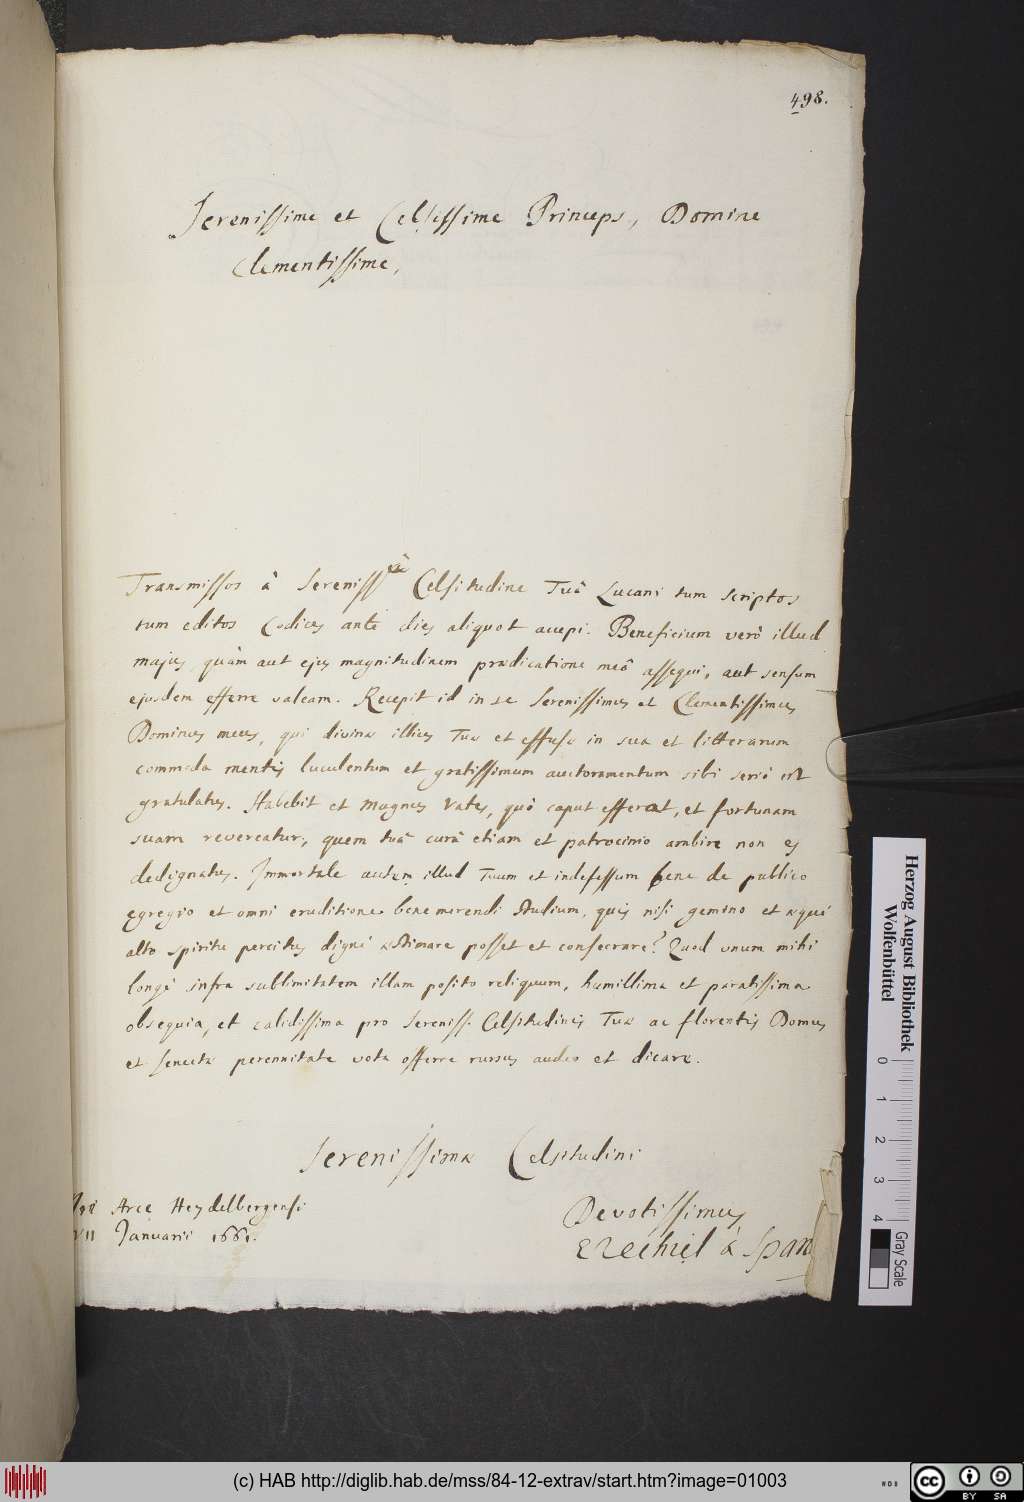 498.
Serenissime et Celsissime Princeps, Domine
Clementissime,
Transmissos à Sereniss^mâ Celsitudine Tuâ Lucani tum scriptos
tum editos Codices ante dies aliquot accepi. Beneficium verò illud
majus, quàm aut ejus magnitudinem prædicatione meâ assequi, aut sensum
ejusdem efferre valeam. Recepit id in se Serenissimus et Clementissimus
Dominus meus, qui divinæ illius Tuæ et effusæ in sua et litterarum
commoda mentis luculentum et gratissimum auctoramentum sibi seriò est
gratulatus. Habebit et magnus Vates, quò caput efferat, et fortunam
suam revereatur, quem tuâ curâ etiam et patrocinio ambire non es
dedignatus. Immortale autem illud Tuum et indefessum bene de publico
egregio et omni eruditione bene merendi studium, quis nisi gemino et æquè
alto spiritu percitus dignè æstimare posset et consecrare? Quod unum mihi
longè infra sublimitatem illam posito reliquum, humillima et paratissima
obsequia, et calidissima pro Sereniss. Celsitudinis Tuæ ac florentis Domus
et senectæ perennitate vota offerre rursus audeo et dicare.
Serenissimæ Celsitudini
Arce Heydelbergensi
VII Januarii 1661.
Devotissimus
Ezechiel à Span
Herzog August Bibliothek
Wolfenbüttel
0 1 2 3 4
Gray Scale
(c) HAB http://diglib.hab.de/mss/84-12-extrav/start.htm?image=01003
WDB
cc BY SA